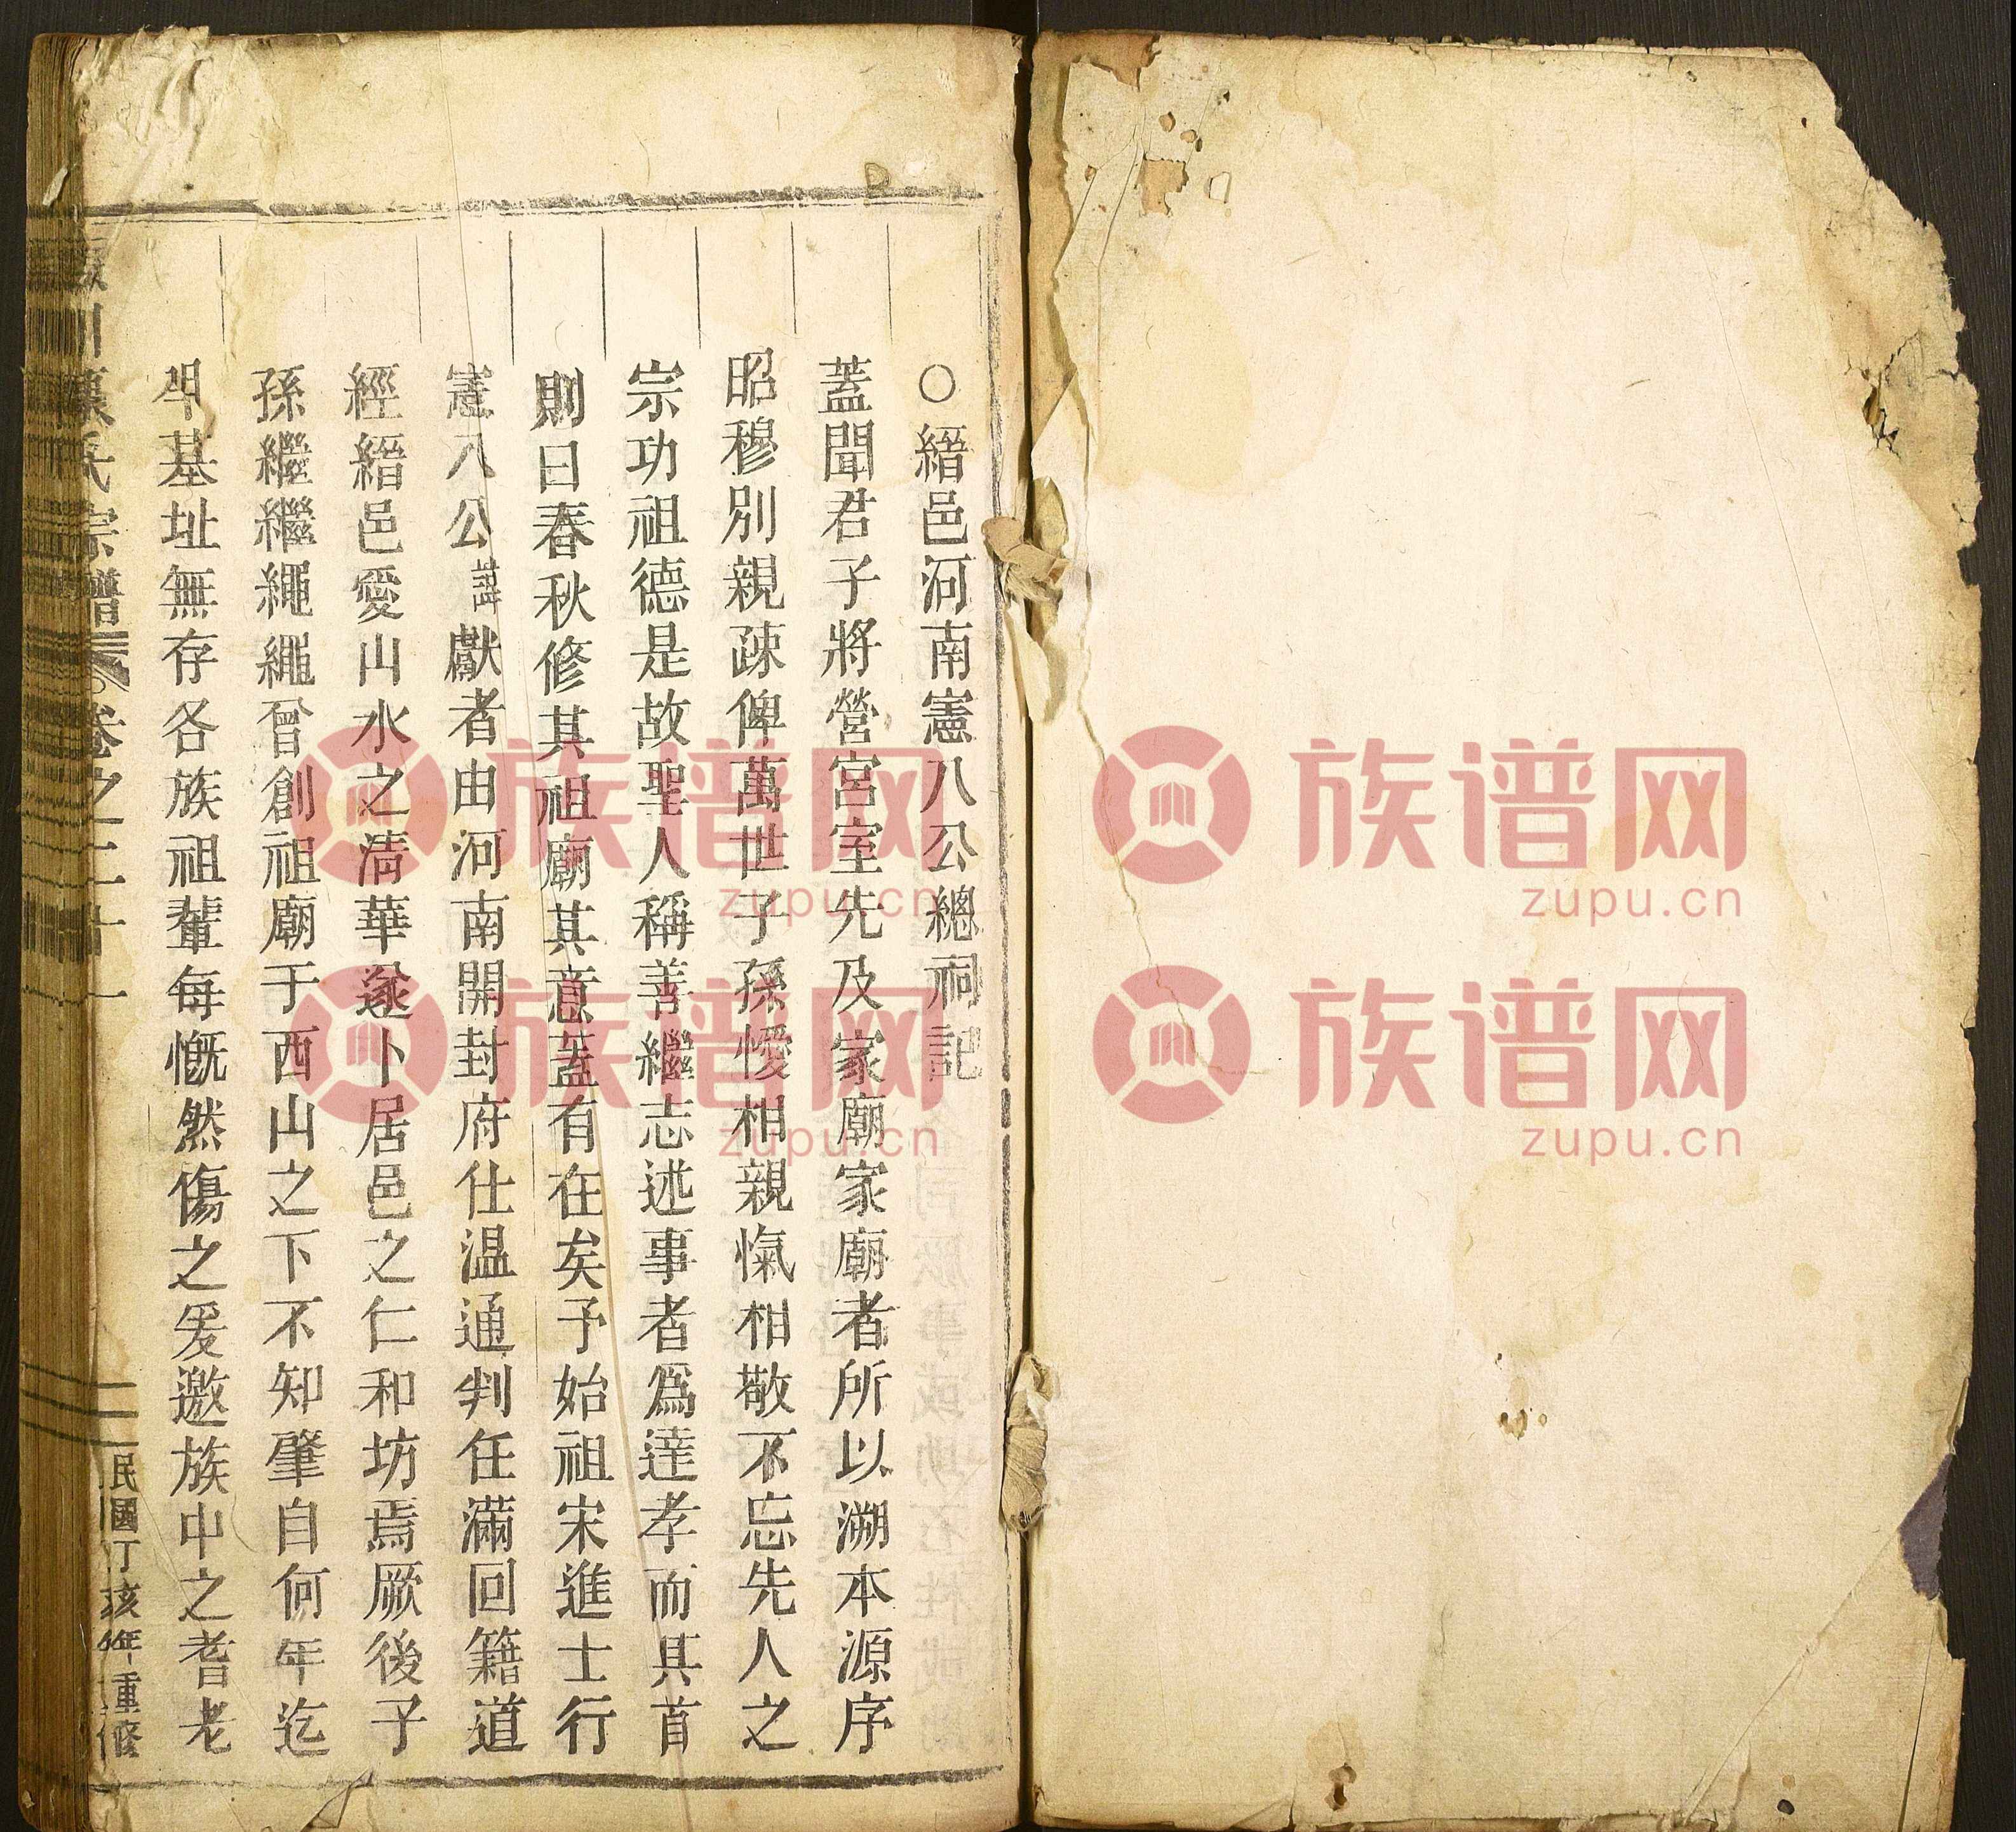 ○縉邑河南憲八公總祠記
蓋聞君子將營宮室先及家廟家廟者所以溯本源序
昭穆別親疎俾萬世子孫慢相親愾相敬不忘先人之
宗功祖德是故聖人稱善繼志述事者爲達孝而其首
則曰春秋修其祖廟其意蓋有在矣予始祖宋進士行
憲八公諱獻者由河南開封府仕温通判任滿回籍道
經縉邑愛山水之清華遂卜居邑之仁和坊焉厥後子
孫繼繼繩繩曾創祖廟于西山之下不知肇自何年迄
今基址無存各族祖輩每慨然傷之爰邀族中之耆老
川 氏宗譜 卷之二十一
一 民國丁亥年重修
族谱网
zupu.cn
族谱网
zupu.cn
族谱网
zupu.cn
族谱网
zupu.cn